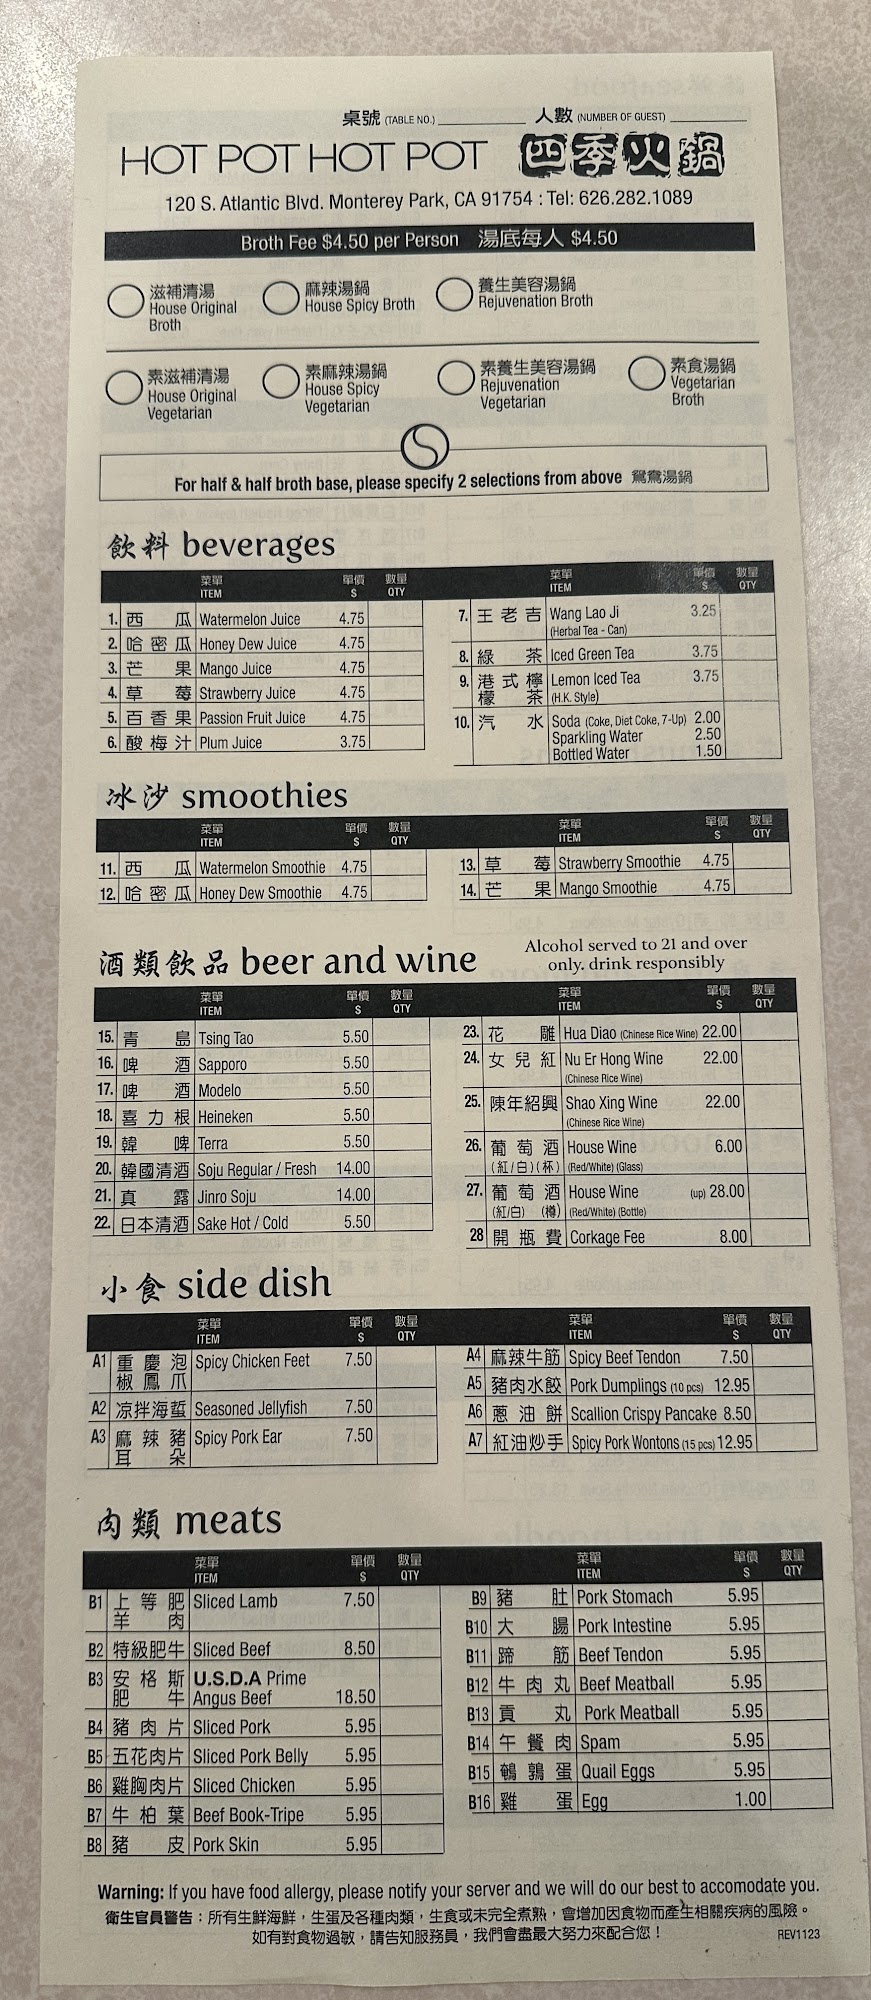 桌號 (TABLE NO.) 人數 (NUMBER OF GUEST)
HOT POT HOT POT 四季火鍋
120 S. Atlantic Blvd. Monterey Park, CA 91754 : Tel: 626.282.1089
Broth Fee $4.50 per Person 湯底每人 $4.50
滋補清湯 House Original Broth
麻辣湯鍋 House Spicy Broth
養生美容湯鍋 Rejuvenation Broth
素滋補清湯 House Original Vegetarian
素麻辣湯鍋 House Spicy Vegetarian
素養生美容湯鍋 Rejuvenation Vegetarian
素食湯鍋 Vegetarian Broth
For half & half broth base, please specify 2 selections from above 鴛鴦湯鍋
飲料 beverages
菜單 ITEM 單價 $ 數量 QTY
1. 西瓜 Watermelon Juice 4.75
2. 哈密瓜 Honey Dew Juice 4.75
3. 芒果 Mango Juice 4.75
4. 草莓 Strawberry Juice 4.75
5. 百香果 Passion Fruit Juice 4.75
6. 酸梅汁 Plum Juice 3.75
菜單 ITEM 單價 $ 數量 QTY
7. 王老吉 Wang Lao Ji 3.25
(Herbal Tea - Can)
8. 綠茶 Iced Green Tea 3.75
9. 港式檸檬茶 Lemon Iced Tea 3.75
(H.K. Style)
10. 汽水 Soda (Coke, Diet Coke, 7-Up) 2.00
Sparkling Water 2.50
Bottled Water 1.50
冰沙 smoothies
菜單 ITEM 單價 $ 數量 QTY
11. 西瓜 Watermelon Smoothie 4.75
12. 哈密瓜 Honey Dew Smoothie 4.75
菜單 ITEM 單價 $ 數量 QTY
13. 草莓 Strawberry Smoothie 4.75
14. 芒果 Mango Smoothie 4.75
酒類飲品 beer and wine
Alcohol served to 21 and over
only. drink responsibly
菜單 ITEM 單價 $ 數量 QTY
15. 青島 Tsing Tao 5.50
16. 啤酒 Sapporo 5.50
17. 啤酒 Modelo 5.50
18. 喜力根 Heineken 5.50
19. 韓啤 Terra 5.50
20. 韓國清酒 Soju Regular / Fresh 14.00
21. 真露 Jinro Soju 14.00
22. 日本清酒 Sake Hot / Cold 5.50
菜單 ITEM 單價 $ 數量 QTY
23. 花雕 Hua Diao (Chinese Rice Wine) 22.00
24. 女兒紅 Nu Er Hong Wine 22.00
(Chinese Rice Wine)
25. 陳年紹興 Shao Xing Wine 22.00
(Chinese Rice Wine)
26. 葡萄酒 House Wine 6.00
(紅/白)(杯) (Red/White) (Glass)
27. 葡萄酒 House Wine (up) 28.00
(紅/白) (樽) (Red/White) (Bottle)
28 開瓶費 Corkage Fee 8.00
小食 side dish
菜單 ITEM 單價 $ 數量 QTY
A1 重慶泡椒鳳爪 Spicy Chicken Feet 7.50
A2 凉拌海蜇 Seasoned Jellyfish 7.50
A3 麻辣豬耳朵 Spicy Pork Ear 7.50
菜單 ITEM 單價 $ 數量 QTY
A4 麻辣牛筋 Spicy Beef Tendon 7.50
A5 豬肉水餃 Pork Dumplings (10 pcs) 12.95
A6 蔥油餅 Scallion Crispy Pancake 8.50
A7 紅油炒手 Spicy Pork Wontons (15 pcs) 12.95
肉類 meats
菜單 ITEM 單價 $ 數量 QTY
B1 上等肥羊肉 Sliced Lamb 7.50
B2 特級肥牛 Sliced Beef 8.50
B3 安格斯肥牛 U.S.D.A Prime
Angus Beef 18.50
B4 豬肉片 Sliced Pork 5.95
B5 五花肉片 Sliced Pork Belly 5.95
B6 雞胸肉片 Sliced Chicken 5.95
B7 牛柏葉 Beef Book-Tripe 5.95
B8 豬皮 Pork Skin 5.95
菜單 ITEM 單價 $ 數量 QTY
B9 豬肚 Pork Stomach 5.95
B10 大腸 Pork Intestine 5.95
B11 蹄筋 Beef Tendon 5.95
B12 牛肉丸 Beef Meatball 5.95
B13 貢丸 Pork Meatball 5.95
B14 午餐肉 Spam 5.95
B15 鵪鶉蛋 Quail Eggs 5.95
B16 雞蛋 Egg 1.00
Warning: If you have food allergy, please notify your server and we will do our best to accomodate you.
衛生官員警告：所有生鮮海鮮，生蛋及各種肉類，生食或未完全煮熟，會增加因食物而產生相關疾病的風險。
如有對食物過敏，請告知服務員，我們會盡最大努力來配合您！
REV1123